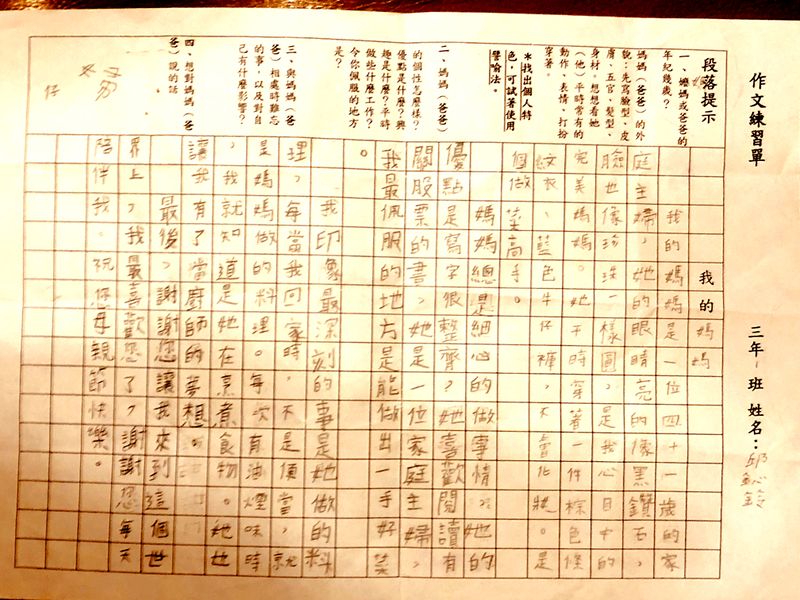 作文練習單 三年-班 姓名：邱鈴
段落提示 我的媽媽
一、媽媽或爸爸的
年紀幾歲？
媽媽（爸爸）的外
貌：先寫臉型、皮
膚、五官、髮型、
身材。想想看她
（他）平時常有的
動作、表情、打扮
穿著。
＊找出個人特
色，可試著使用
譬喻法。
二、媽媽（爸爸）
的個性怎麼樣？
優點是什麼？興
趣是什麼？平時
做些什麼工作？
令你佩服的地方
是？
三、與媽媽（爸
爸）相處時難忘
的事，以及對自
己有什麼影響？
四、想對媽媽（爸
爸）說的話
我的媽媽是一位四十一歲的家
庭主婦，她的眼睛亮的像黑鑽石，
臉也像珍珠一樣圓，是我心目中的
完美媽媽。她平時穿著一件棕色條
紋衣、藍色牛仔褲，不會化妝。是
個做菜高手。
媽媽總是細心的做事情。她的
優點是寫字很整齊，她喜歡閱讀有
關股票的書，她是一位家庭主婦，
我最佩服的地方是能做出一手好菜
。
我印象最深刻的事是她做的料
理，每當我回家時，不是便當，就
是媽媽做的料理。每次有油煙味時
，我就知道是她在烹煮食物。她也
讓我有了當廚師的夢想。
最後，謝謝您讓我來到這個世
界上，我最喜歡您了，謝謝您每天
陪伴我。祝您母親節快樂。
仔